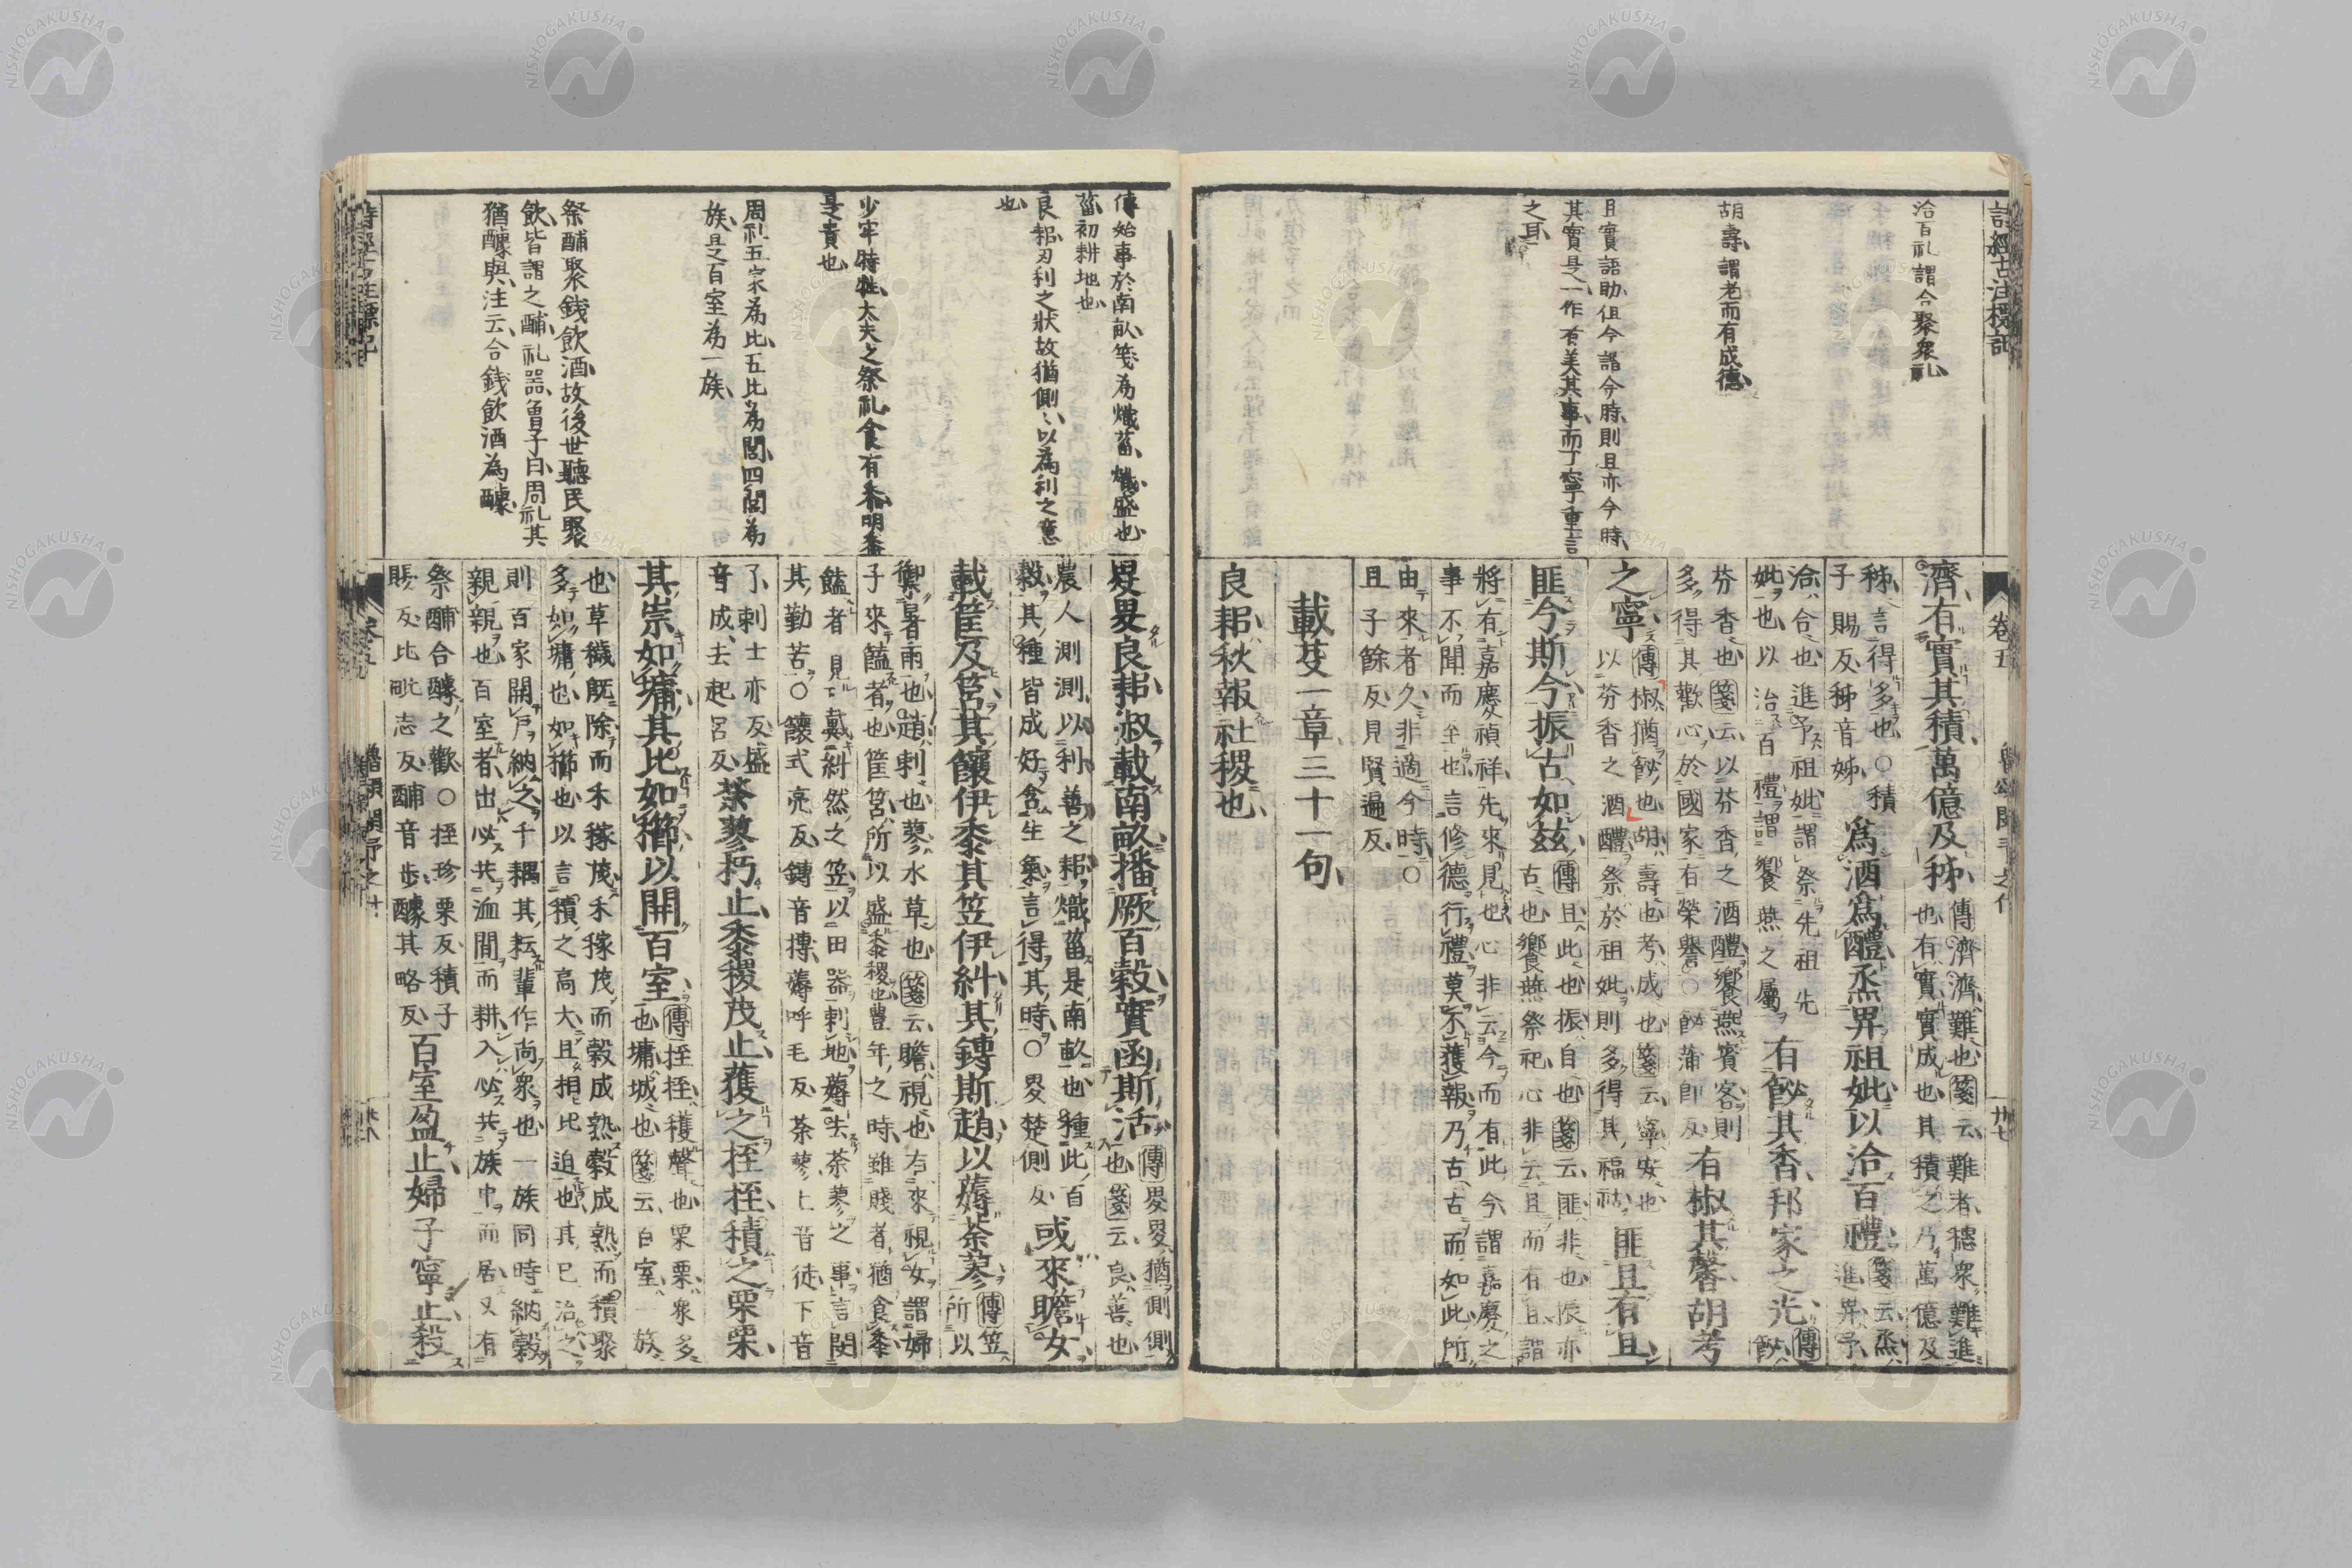 洽百礼謂合聚衆礼
胡壽謂老而有成德
且實語助但今謂今時則且亦今時
其實是一作者美其事而丁寧重言
之耳
濟有實其積萬億及秭傳濟濟難也箋云難者穗衆難進
也有實實成也其積之乃萬億及
秭言得多也○積
子賜反秭音姊
爲酒爲醴烝畀祖妣以洽百禮箋云烝
進畀予
洽合也進予祖妣謂祭先祖先
妣也以洽百禮謂饗燕之屬
有飶其香邦家之光傳
飶
芬香也箋云以芬香之酒醴饗燕賓客則
多得其歡心於國家有榮譽○飶蒲即反
有椒其馨胡考
之寧傳椒猶飶也胡壽也考成也箋云寧安也
以芬香之酒醴祭於祖妣則多得其福祜
匪且有且
匪今斯今振古如茲傳且此也振自也箋云匪非也振亦
古也饗燕祭祀心非云且而有且謂
將有嘉慶禎祥先來見也心非云今而有此今謂嘉慶之
事不聞而至也言修德行禮莫不獲報乃古古而如此所
由來者久非適今時○
且子餘反見賢遍反
載芟一章三十一句
良耜秋報社稷也
卷五
廿七
傳始事於南畝箋為熾菑熾盛也
菑初耕地也
良耜刃利之狀故猶側以為利之意
也
少牢特牲大夫之祭礼食有黍明黍
是貴也
周礼五家為比五比為閭四閭為
族是百室為一族
祭酺聚錢飲酒故後世聽民聚
飲皆謂之酺礼器曾子曰周礼其
猶醵與注云合錢飲酒為醵
畟畟良耜俶載南畝播厥百穀實函斯活傳畟畟猶側側
也箋云良善也
農人測測以利善之耜熾菑是南畝也種此百
穀其種皆成好含生氣言得其時○畟楚側反
或來瞻女
載筐及筥其饟伊黍其笠伊糾其鎛斯趙以薅荼蓼傳笠
所以
禦暑雨也趙刺也蓼水草也箋云瞻視也有來視女謂婦
子來饁者也筐筥所以盛黍稷也豐年之時雖賤者猶食黍
饁者見戴糾然之笠以田器刺地薅去荼蓼之事言閔
其勤苦○饟式亮反鎛音摶薅呼毛反荼蓼上音徒下音
了刺士亦反盛
音成去起呂反
荼蓼朽止黍稷茂止穫之挃挃積之栗栗
其崇如墉其比如櫛以開百室傳挃挃穫聲也栗栗衆多
也墉城也箋云百室一族
也草穢既除而禾稼茂禾稼茂而穀成熟穀成熟而積聚
多如墉也如櫛也以言積之高大且相比迫也其已治之
則百家開戶納之千耦其耘輩作尚衆也一族同時納穀
親親也百室者出必共洫間而耕入必共族中而居又有
祭酺合醵之歡○挃珍栗反積子
賜反比毗志反酺音步醵其略反
百室盈止婦子寧止殺